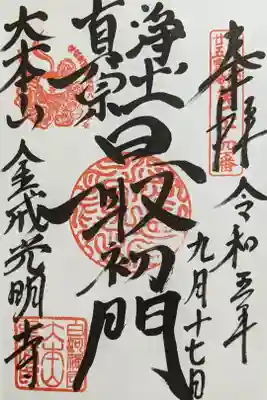 奉拝 令和五年
九月十七日
浄土
真宗
最初門
大本山 金戒光明寺
大本山